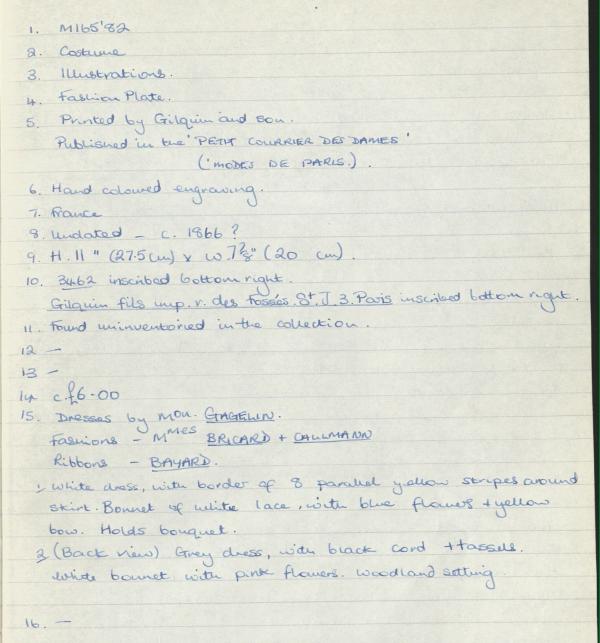 1. M165'82
2. Costume
3. Illustrations.
4. Fashion Plate.
5. Printed by Gilquin and son.
Published in the 'PETIT COURRIER DES DAMES'
('MODES DE PARIS.) .
6. Hand coloured engraving.
7. France
8. Undated - c. 1866 ?
9. H. 11" (27.5 cm) x W 7 7/8" (20 cm).
10. 3462 inscribed bottom right.
Gilquin fils imp. r. des Fossés. St. J. 3. Paris inscribed bottom right.
11. Found uninventoried in the collection.
12 -
13 -
14 c.£6-00
15. Dresses by Mon. GAGELIN.
Fashions - Mmes BRICARD + CALLMANN
Ribbons - BAYARD.
1/ White dress, with border of 8 parallel yellow stripes around
skirt. Bonnet of white lace, with blue flowers + yellow
bow. Holds bouquet.
2/ (Back view) Grey dress, with black cord + tassels.
White bonnet with pink flowers. Woodland setting.
16. -